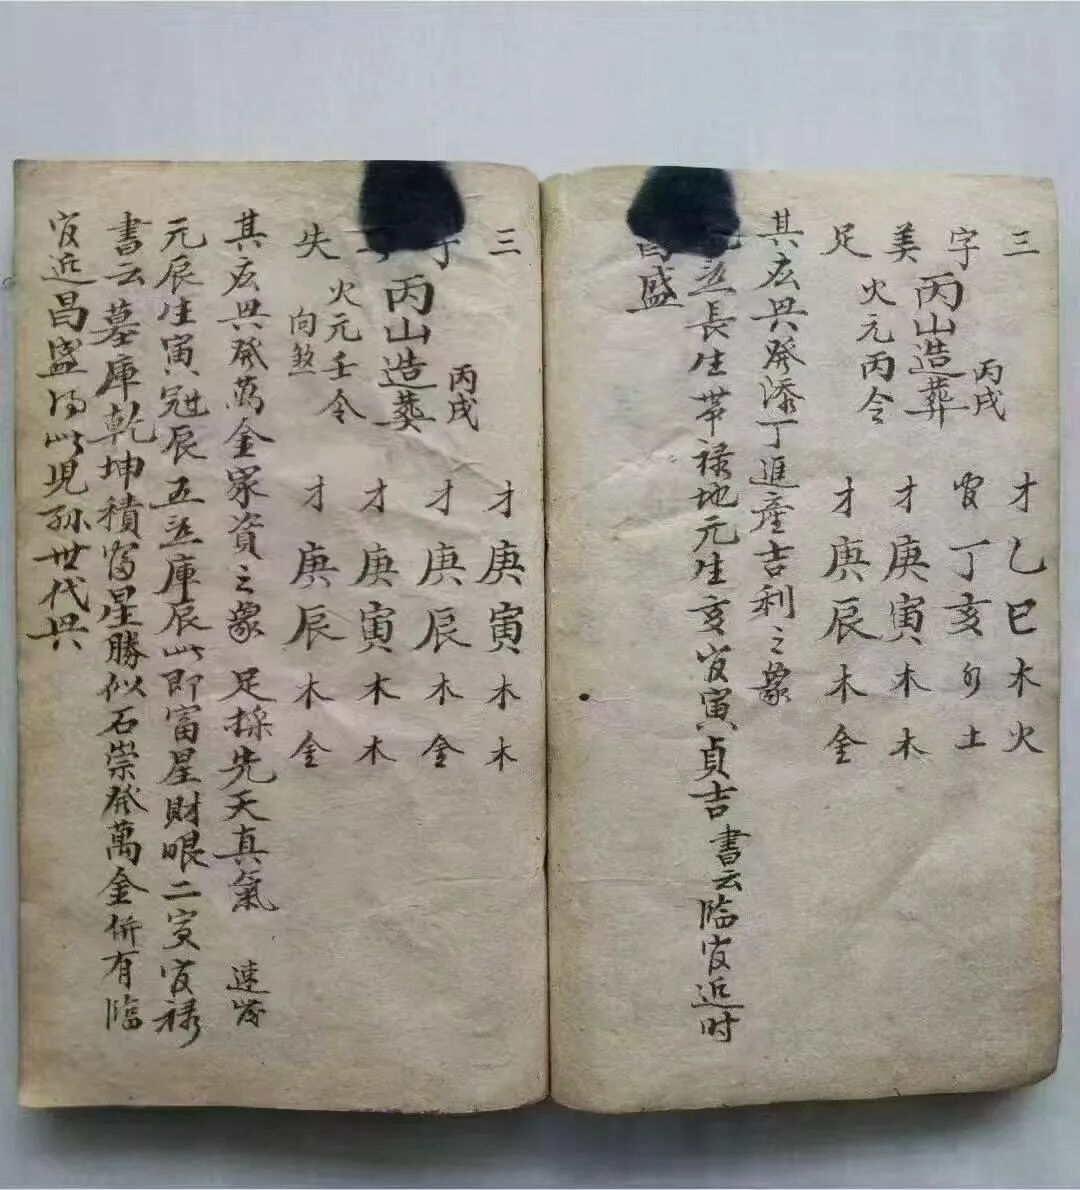 三
字
美
足
丙戌
丙山造葬
火元丙令
才乙巳木火
官丁亥水土
才庚寅木木
才庚辰木金
其庄興發添丁進産吉利之象
長生帶禄地元生亥官寅貞吉書云臨官近时
昌盛
三
丁
失
丙戌
丙山造葬
火元壬令
向煞
才庚寅木木
才庚辰木金
才庚寅木木
才庚辰木金
其庄興發萬金家資之象 足採先天真氣 速發
元辰生寅冠辰五並庫辰此即富星財眼二寅官禄
書云墓庫乾坤積富星勝似石崇發萬金併有臨
官近昌盛得此児孫世代興